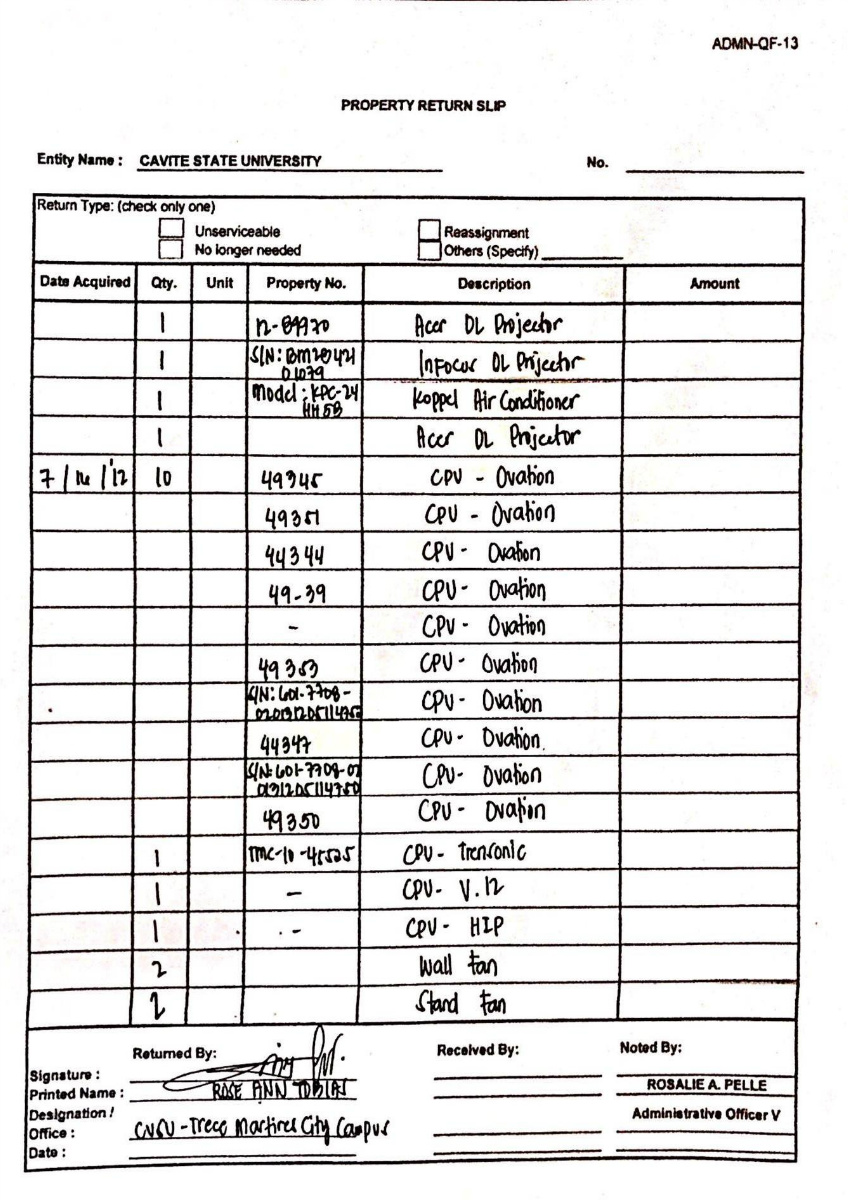 ADMN-QF-13
PROPERTY RETURN SLIP
Entity Name : CAVITE STATE UNIVERSITY No.
Return Type: (check only one)
Unserviceable Reassignment
No longer needed Others (Specify)
Date Acquired Qty. Unit Property No. Description Amount
1 12-89970 Acer DL Projector
1 S/N: BM280421 01079 InFocus DL Projector
1 Model: KPC-24 HH5B Koppel Air Conditioner
1 Acer DL Projector
7 / 16 / '12 10 49345 CPU - Ovation
49351 CPU - Ovation
44344 CPU - Ovation
49-39 CPU - Ovation
- CPU - Ovation
49353 CPU - Ovation
S/N: 601-7708- 020131205114752 CPU - Ovation
44347 CPU - Ovation
S/N: 601-7709-02 0131205114750 CPU- Ovation
49350 CPU - Ovation
1 TMC-10-45525 CPU- Trensonic
1 - CPU- V.12
1 - CPU - HIP
2 Wall Fan
2 Stand Fan
Returned By: Received By: Noted By:
Signature :
Printed Name : ROSE ANN TOBIAS ROSALIE A. PELLE
Designation / Administrative Officer V
Office : CVSU - Trece Martires City Campus
Date :